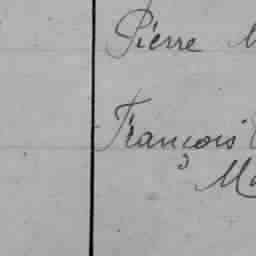 Pierre
François